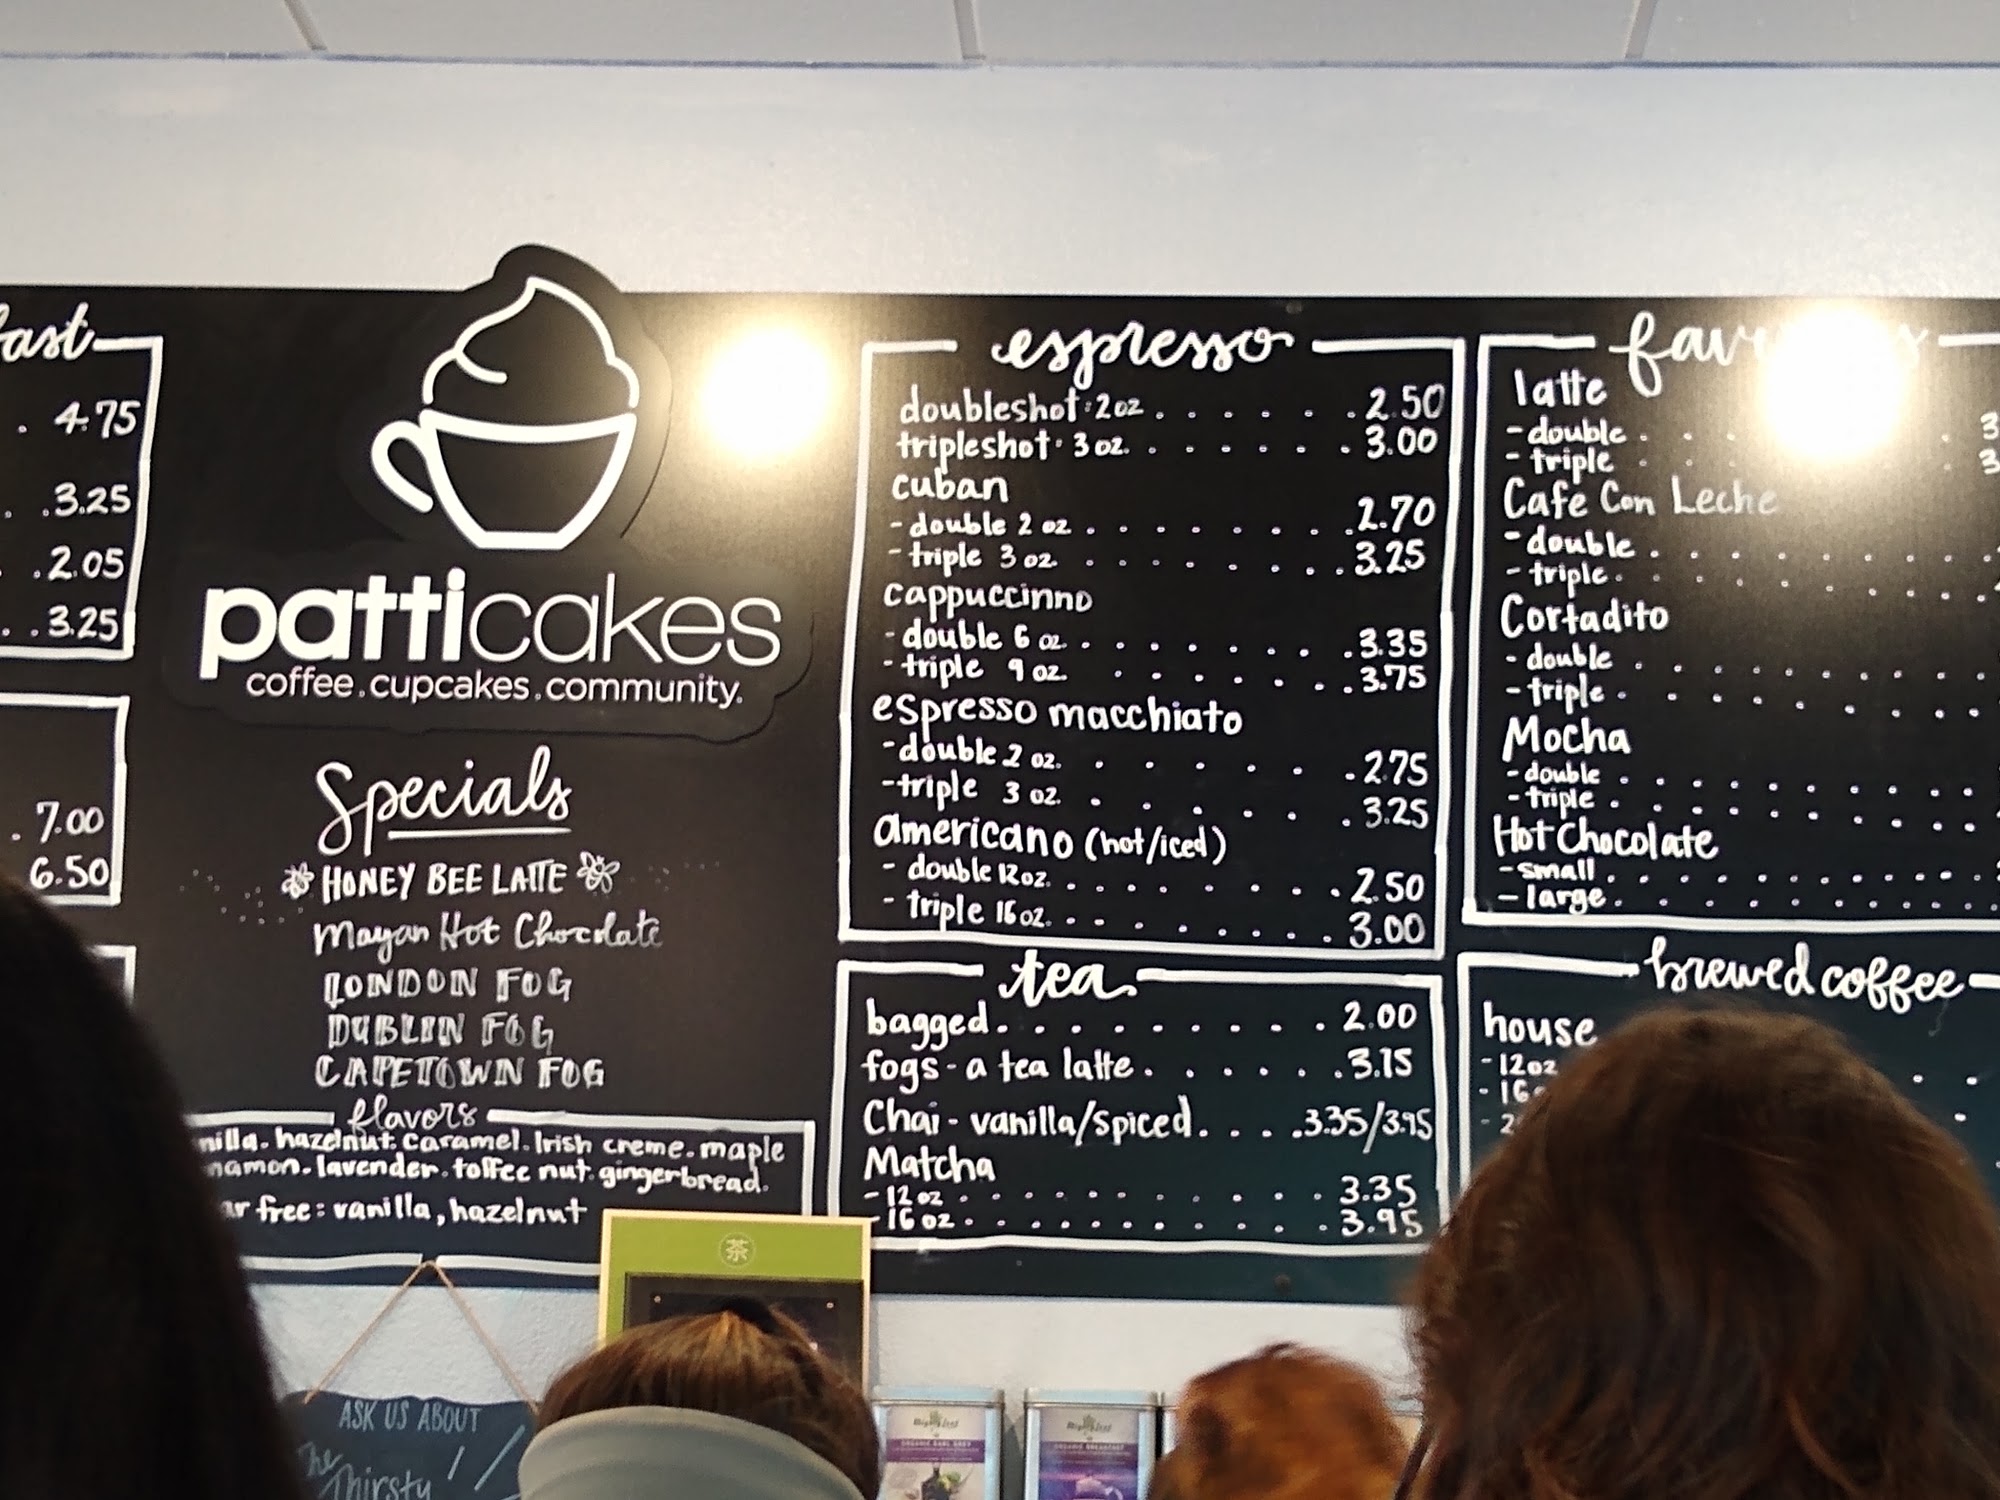 4.75
3.25
2.05
3.25
7.00
6.50
patticakes
coffee.cupcakes.community.
Specials
HONEY BEE LATTE
Mayan Hot Chocolate
LONDON FOG
DUBLIN FOG
CAPETOWN FOG
flavors
hazelnut. caramel. Irish creme. maple
lavender. toffee nut. gingerbread.
free: vanilla, hazelnut
espresso
doubleshot · 2oz . . . . . . 2.50
tripleshot · 3 oz. . . . . . . 3.00
cuban
- double 2 oz . . . . . . . . 2.70
- triple 3 oz. . . . . . . . . 3.25
cappuccinno
- double 6 oz. . . . . . . . . 3.35
- triple 9 oz. . . . . . . . 3.75
espresso macchiato
- double 2 oz. . . . . . . 2.75
- triple 3 oz. . . . . . . 3.25
americano (hot/iced)
- double 12oz. . . . . . . . . 2.50
- triple 16oz. . . . . . . . . 3.00
tea
bagged. . . . . . . . . . 2.00
fogs - a tea latte. . . . . . 3.15
Chai - vanilla/spiced. . . . 3.35/3.95
Matcha
- 12 oz . . . . . . . . . . . 3.35
- 16 oz. . . . . . . . . . . 3.95
latte
- double . . .
- triple . . .
Café Con Leche
- double . . . . . . . . .
- triple. . . . . . . . . .
Cortadito
- double . . . . . . . . .
- triple . . . . . . . . .
Mocha
- double . . . . . . . . . .
- triple . . . . . . . . . .
Hot Chocolate
- small . . . . . . . . . .
- large. . . . . . . . . .
brewed coffee
house
- 12oz
ASK US ABOUT
The
Thirsty
茶
ORGANIC EARL GREY
ORGANIC BREAKFAST